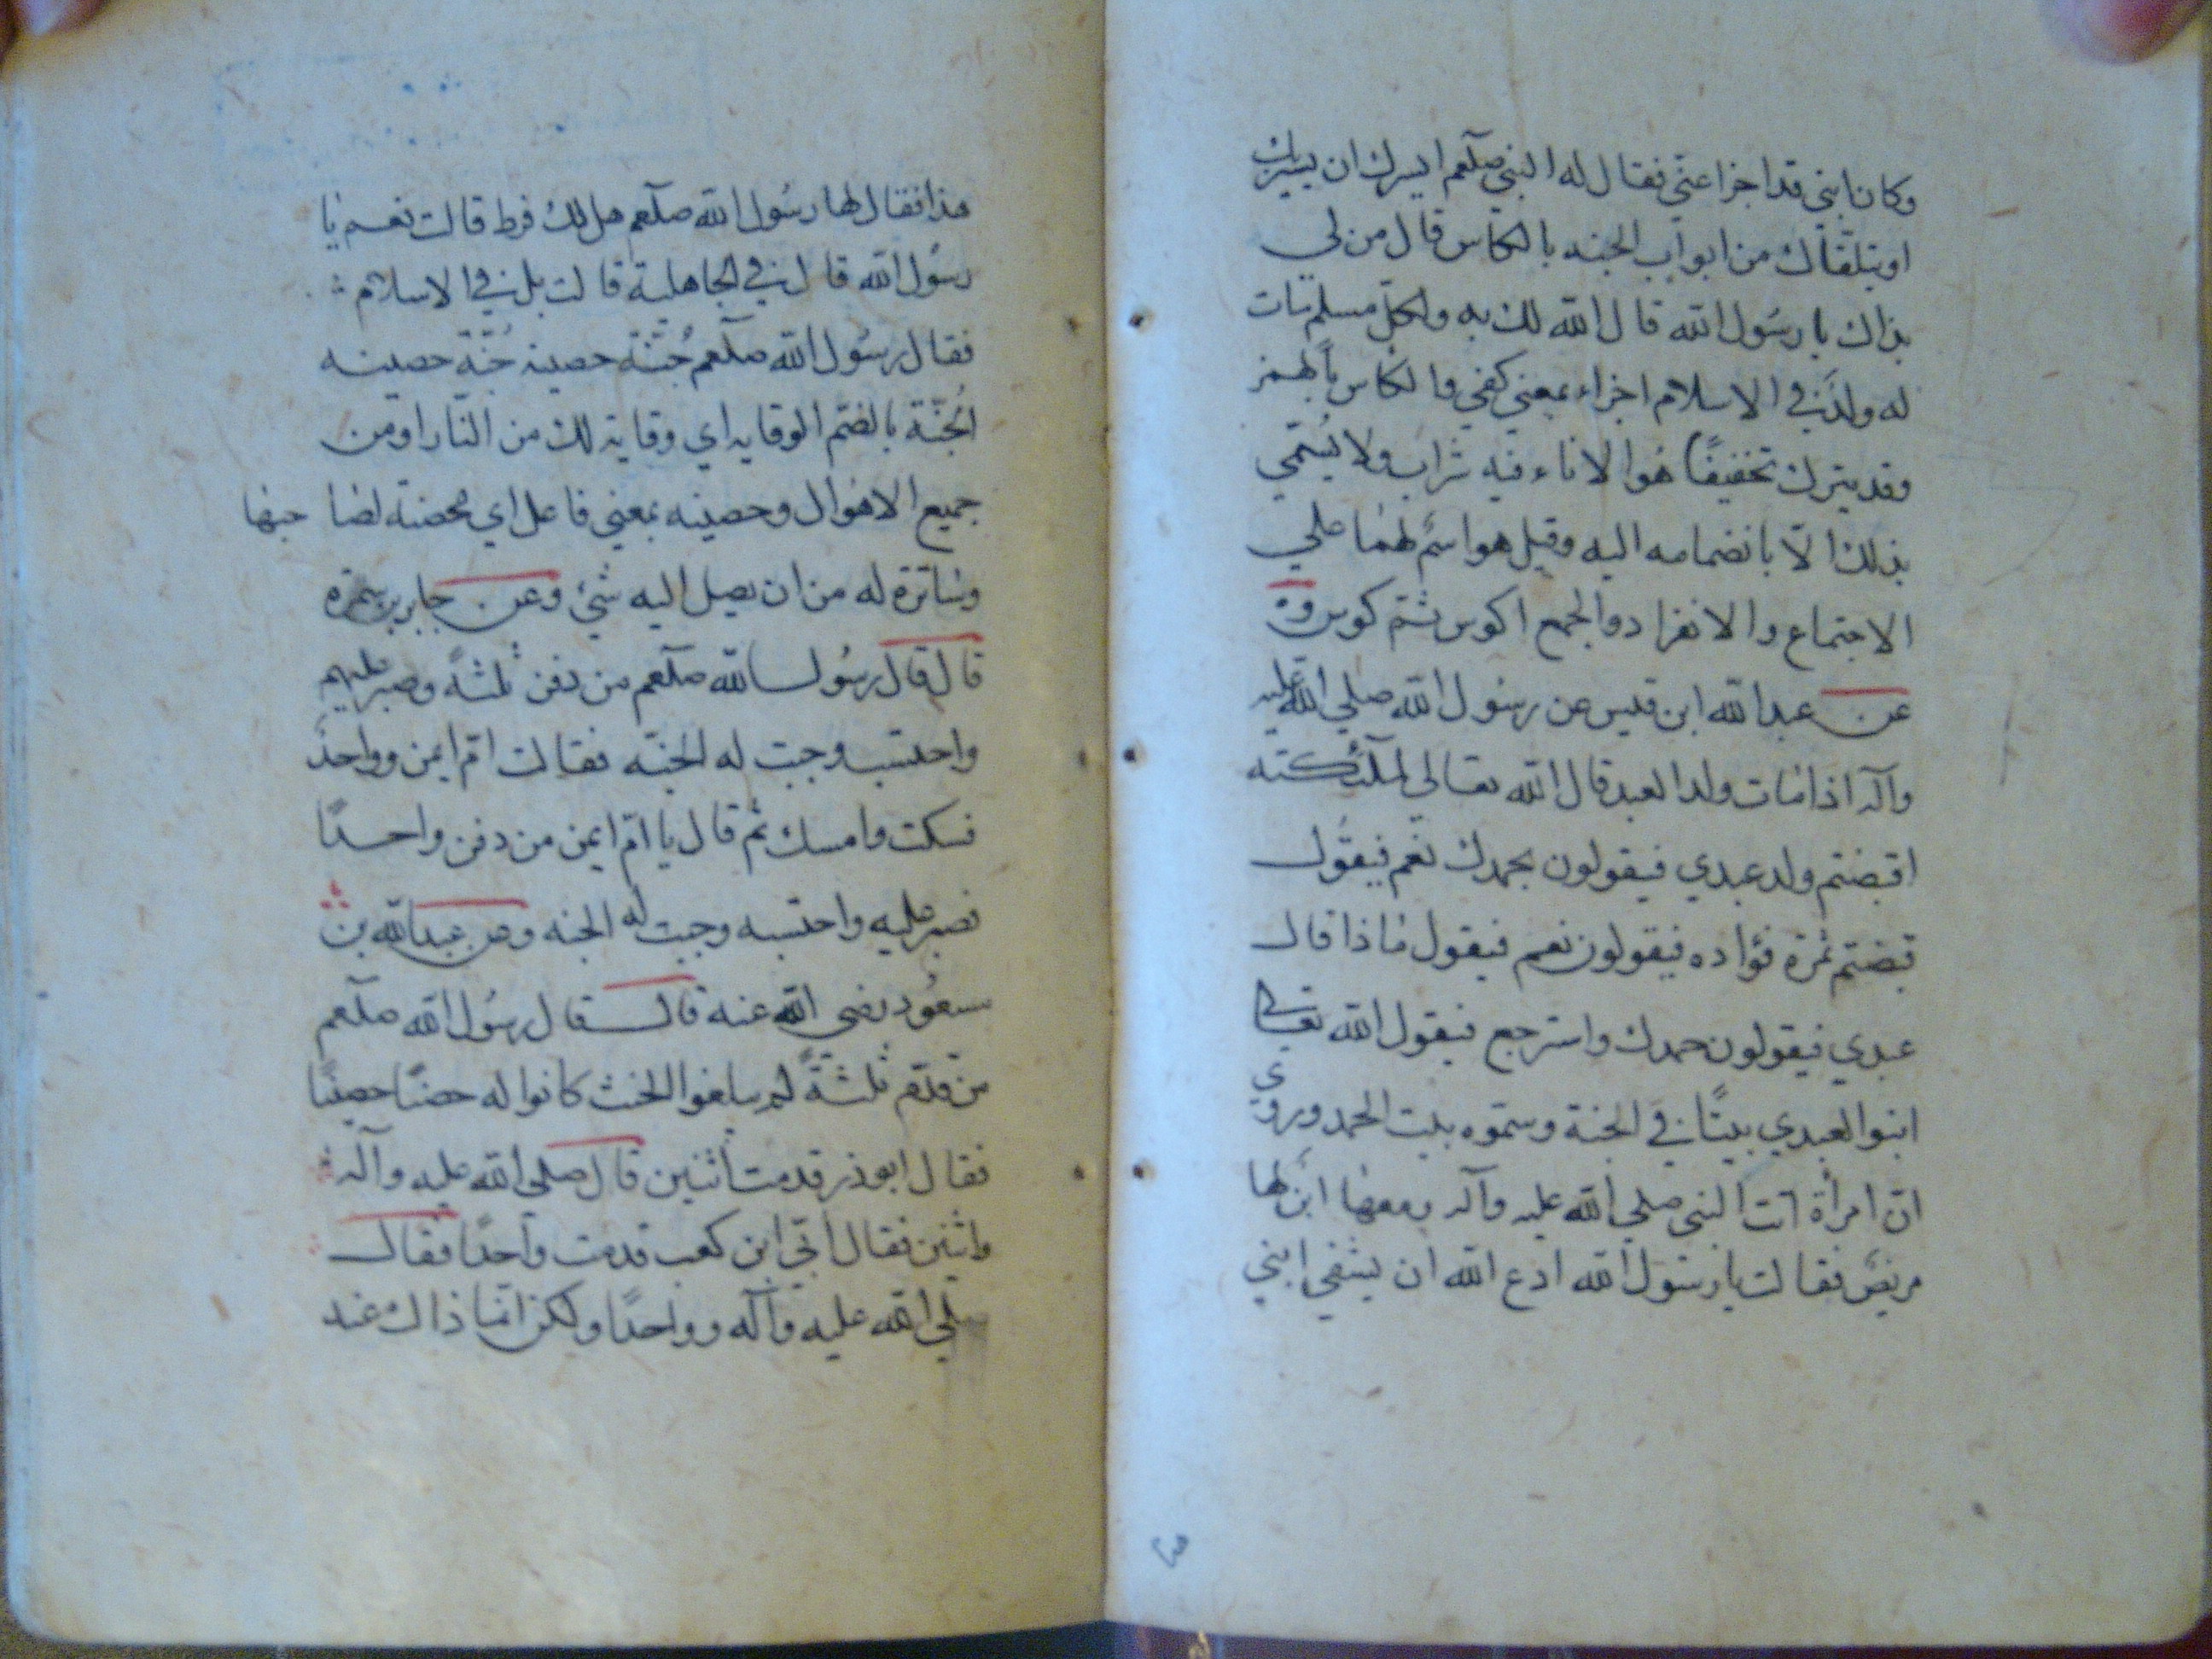 وكان ابني قد اجزا عني فقال له النبي صلعم ايسرك ان
او يتلقاك من ابواب الجنه بالكأس قال من لي
بذاك يا رسول الله قال الله لك به ولكل مسلم مات
له ولد في الاسلام اجزاء بمعني كفي والكاس بالهمز
وقد يترك تخفيفًا هو الاناء فيه شراب ولا يسمي
بذلك الّا بانضمامه اليه وقيل هو اسم لهما علي
الاجتماع والانفراد والجمع اكوس ثم كوس و
عن عبد الله ابن قيس عن رسول الله صلي الله عليه
وآله اذا مات ولد العبد قال الله تعالي لملائكته
اقبضتم ولد عبدي فيقولون بحمدك نعم فيقول
قبضتم ثمرة فؤاده فيقولون نعم فيقول ماذا قال
عبدي فيقولون حمدك واسترجع فيقول الله تعالي
ابنوا لعبدي بيتًا في الجنة وسموه بيت الحمد وروي
انّ امرأة اتت النبي صلي الله عليه وآله ومعها ابن لها
مريض فقالت يا رسول الله ادع الله ان يشفي ابني
هذا فقال لها رسول الله صلعم هل لك فرط قالت نعم يا
رسول الله قال في الجاهلية قالت بل في الاسلام
فقال رسول الله صلعم جُنّة حصينه جُنّة حصينه
الجُنّة بالضم الوقايه اي وقاية لك من النار او من
جميع الاهوال وحصينه بمعني فاعل اي محصنة لصاحبها
وساترة له من ان يصل اليه شيء وعن جابر بن سمرة
قال قال رسول الله صلعم من دفن ثلثةً وصبر عليهم
واحتسب وجبت له الجنّه فقالت امّ ايمن وواحد
فسكت وامسك ثم قال يا امّ ايمن من دفن واحدًا
فصبر عليه واحتسبه وجبت له الجنه وعن عبد الله بن
مسعود رضي الله عنه قال قال رسول الله صلعم
من قدّم ثلثةً لم يبلغوا الحنث كانوا له حصنًا حصينًا
فقال ابو ذر قدمت اثنين قال صلي الله عليه وآله
واثنين فقال ابيّ ابن كعب قدمت واحدًا فقال
صلي الله عليه وآله وواحدًا ولكن انّما ذاك عند